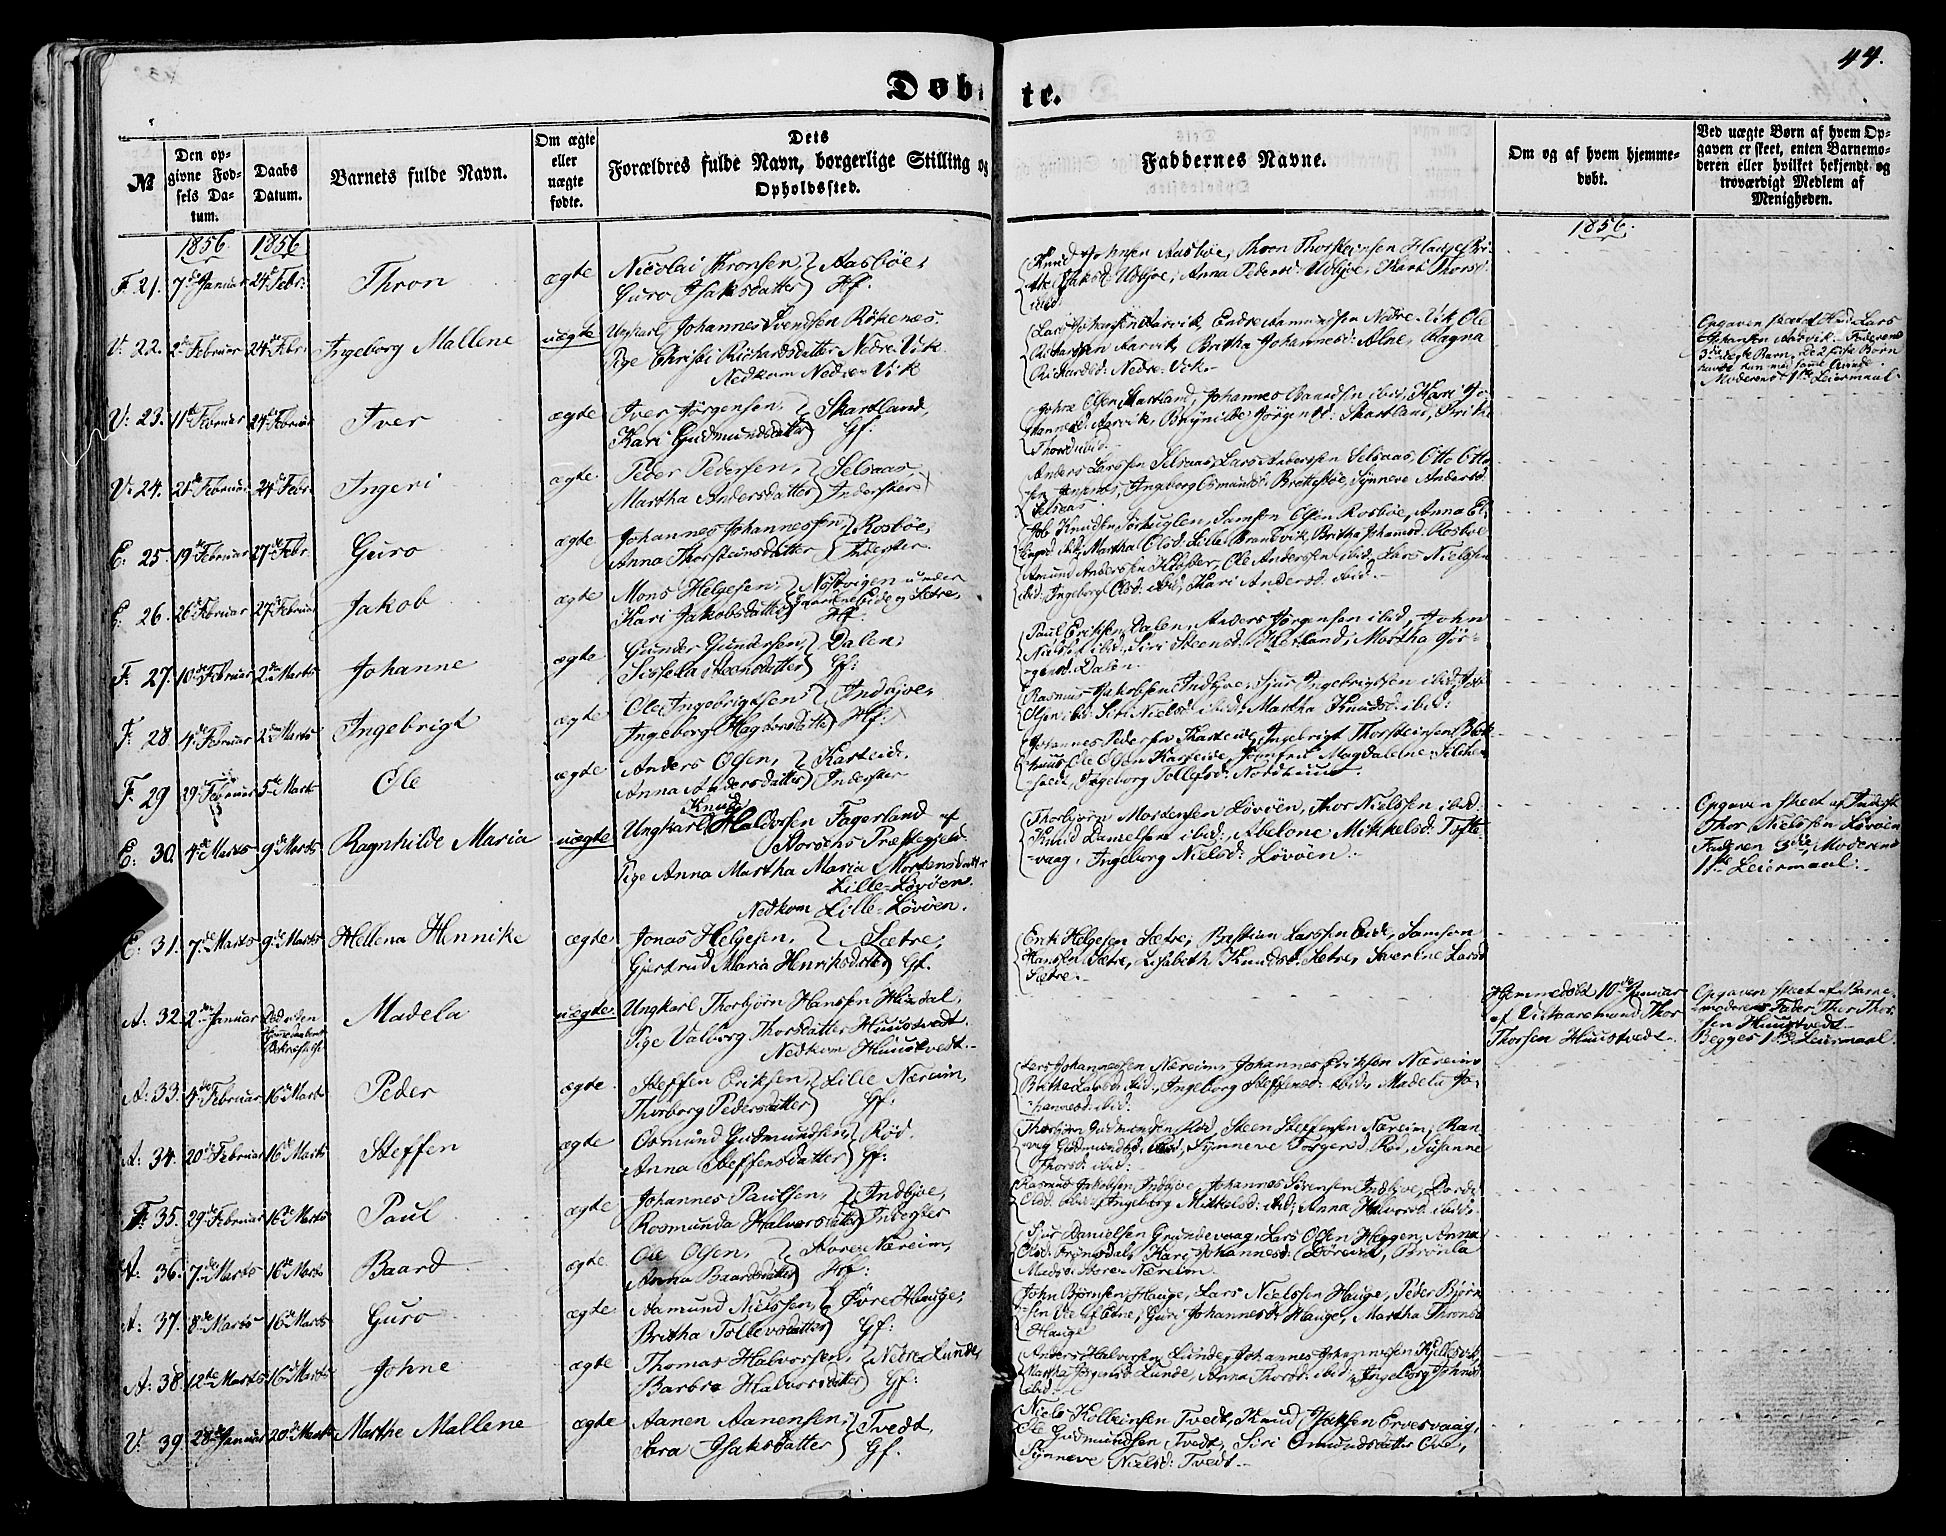 44.
Døbte.
№
Den opgivne Fødsels Datum.
Daabs Datum.
Barnets fulde Navn.
Om ægte eller uægte fødte.
Dets Forældres fulde Navn, borgerlige Stilling og Opholdssted.
Faddernes Navne.
Om og af hvem hjemmedøbt.
Ved uægte Børn af hvem Opgaven er skeet, enten Barnemoderen eller hvilket bekjendt og troværdigt Medlem af Menigheden.
1856 1856 1856.
F. 21. 7de Januar 24de Febr: Thron ægte Nicolai Thronsen, Aasbøe,
Guro Isaksdatter Hf.
Anna Pedersd: Udbjoe, Kari Thorsd:
ibid:
V: 22. 2de Februar 24de Febr: Ingeborg Mallene uægte Ungkarl Johannes Svendsen Rökenes.
Pige Christi Richardsdatter Nedre-Vik
Nedkom Nedre-Vik
Lars Johansen Aarvik, Endre Aamundsen Nedre-Vik, Ole
Richardsen Aarvik, Britha Johannesd: Alne, Magna
Richardsd: Nedre-Vik.
Opgaven skeet af Lars
Johansen Aarvik. Faderens
3die uægte Barn, de 2 første Børn
havde han med samme Qvinde.
Moderens 1ste Leiermaal.
V: 23. 11te Februar 24de Februar Iver ægte Iver Jørgensen, Skartland,
Kari Gudmundsdatter Gf.
Johannes Baardsen ibid, Kari Johannesd:
Aarvik, Brynilde Jørgensd: Skartland,
Thorsd ibid.
V: 24. 21de Februar 24de Febr. Ingeri ægte Peder Pedersen, Selsaas,
Martha Andersdatter Inderster
Anders Larssen Selsaas, Lars Anderssen Selsaas, Otto Otto-
Ingeborg Osmundsd: Synneve Andersd:
Selsaas.
E: 25 19de Februar 27de Febr. Guro ægte Johannes Johannessen Rosbøe,
Anna Thorsteinsdatter Inderster
Samson Olsen Rosbøe,
Martha Olsd: Lille Brandvik, Britha Johannsd: Rosboe
E: 26 26de Februar 27de Februar Jakob ægte Mons Helgesen, Nøstvigen under
Kari Jakobsdatter Gaardene Eide og Sætre,
Hf.
Amund Anderssen Kloster, Ole Anderssen ibid, Lars Nielssen
ibid, Ingeborg Olsd: ibid, Kari Andersd: ibid.
F: 27. 10de Februar 2den Marts Johanne ægte Gunder Gundersen, Dalen,
Sissela Steensdatter Gf.
Paul Eriksen, Dalen, Anders Jørgensen ibid, John
ibid. Siri Steensd: Hetland, Martha Jør-
gensd: Dalen.
F: 28. 4de Februar 2den Marts Ingebrigt ægte Ole Ingebrigtsen, Indbjoe,
Ingeborg Hagbarsdatter Hf.
Rasmus Jakobsen Indbjoe, Sjur Ingebrigtsen ibid,
Olsen ibid. Siri Nielsd: ibid. Martha Knudsd: ibid:
F: 29 29de Februar 5te Marts Ole ægte Anders Olsen, Karteid.
Anna Andersdatter Inderster
Johannes Pedersen Karteide, Ingebrigt Thorsteinsen
Ole Olsen Karteide, Jomfru Magdalene
Ingeborg Tollefsd: Nordhuus.
E: 30. 4de Marts 9de Marts Ragnhilde Maria uægte Ungkarl Knud Haldorsen Fagerland af
Storøens Præstegjeld.
Pige Anna Martha Maria Mortensdatter
Lille-Løvöen.
Nedkom Lille-Løvöen.
Thorbjørn Mortensen Løvöen, Thor Nielssen ibid.
Knud Danielsen ibid, Abelone Mikkelsd: Tofte-
vaag, Ingeborg Nielsd: Løvöen.
Opgaven skeet af
Thor Nielssen Løvöen
Faderen 3die, Moderens
1ste Leiermaal.
E: 31. 7de Marts 9de Marts Hellena Hennike ægte Jonas Helgesen, Sætre,
Gjertrud Maria Henriksdatter Gf.
Erik Helgesen Sætre, Bastian Larssen Eide, Samson
Hanssen Sætre, Lisbeth Knudsd. Sætre, Severine Larsd
Sætre.
A: 32. 2den Januar Madela uægte Ungkarl Thorbjørn Hanssen Hindal,
Pige Valborg Thorsdatter Huustvedt.
Nedkom Huustvedt.
Hjemmedøbt 10de Januar
af Thor
Thorsen Huustvedt.
Opgaven skeet af Barne-
moderens Fader Thor Thor-
sen Huustvedt.
Begges 1ste Leiermaal.
A: 33. 4de Februar 16de Marts Peder ægte Steffen Eriksen, Lille Næreim,
Thorborg Pedersdatter Gf.
Lars Johannessen Næreim, Johannes Eriksen Næreim
Britha Larsd ibid, Ingeborg Steffensd: ibid, Madela Jo-
hannesd: ibid:
A: 34. 20de Februar 16de Marts Steffen ægte Osmund Gudmundsen, Rød.
Anna Steffensdatter Gf.
Thorbjørn Gudmundsen Rød, Steen Steffensen Næreim, Ran-
veig Gudmundsd. Synneve Torgersd Rød, Susanne
Thorsd: ibid:
F: 35. 29de Februar 16de Marts Paul ægte Johannes Paulsen, Indbjoe,
Rosmunda Halvorsdatter Inderster
Rasmus Jakobsen Indbjoe, Johannes Sørensen Indbjoe, Dorde
Olsd. ibid: Ingeborg Mikkelsd: ibid; Anna Halvorsd. ibid.
A. 36. 7de Marts 16de Marts Baard ægte Ole Olsen, Store Næreim,
Anna Baardsdatter Hf:
Sjur Danielsen Grindevaag, Lars Olsen Heggen, Anna
Olsd. Kari Johannesd: Brønla
Madsd. Store-Næreim.
A: 37. 8de Marts 16de Marts Guro ægte Aamund Nielssen, Øvre Hauge,
Britha Tollevsdatter Gf:
John Bjørnsen Hauge, Lars Nielssen Hauge, Peder Bjørn-
sen af Etne, Guri Johannesd: Hauge, Martha Thronsd
Hauge
A: 38. 12te Marts 16de Marts Johne ægte Thomas Halvorsen, Nedre-Lunde,
Barbra Halvorsdatter Gf:
Anders Halvorsen Lunde, Johannes Johannesen
Martha Jørgensd Lunde, Anna Thorsd: ibid, Ingeborg Johnsd
ibid.
V: 39. 28de Januar 20de Marts Marthe Mallene ægte Aanen Aanensen, Tvedt,
Sara Isaksdatter Gf.
Niels Kolbeinsen Tvedt, Knud Isaksen Ervesvaag,
Ole Gudmundsen Tvedt, Siri Omundsdatter
Synneve Nielsd: Tvedt.